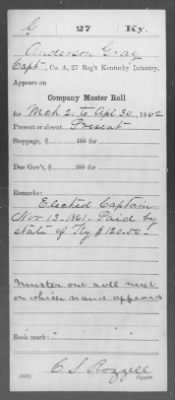 G 27 Ky.
Anderson Gray
Capt., Co. A, 27 Reg't Kentucky Infantry.
Appears on
Company Master Roll
for Mch 2 to Apl 30, 1862
Present or absent Present
Stoppage, $ 100 for
Due Gov't, $ 100 for
Remarks:
Elected Captain
Nov 13. 1861. Paid by
state of Ky $120.00
Muster out roll next
on which name appears
Book mark:
C S Rozzell
Copyist.